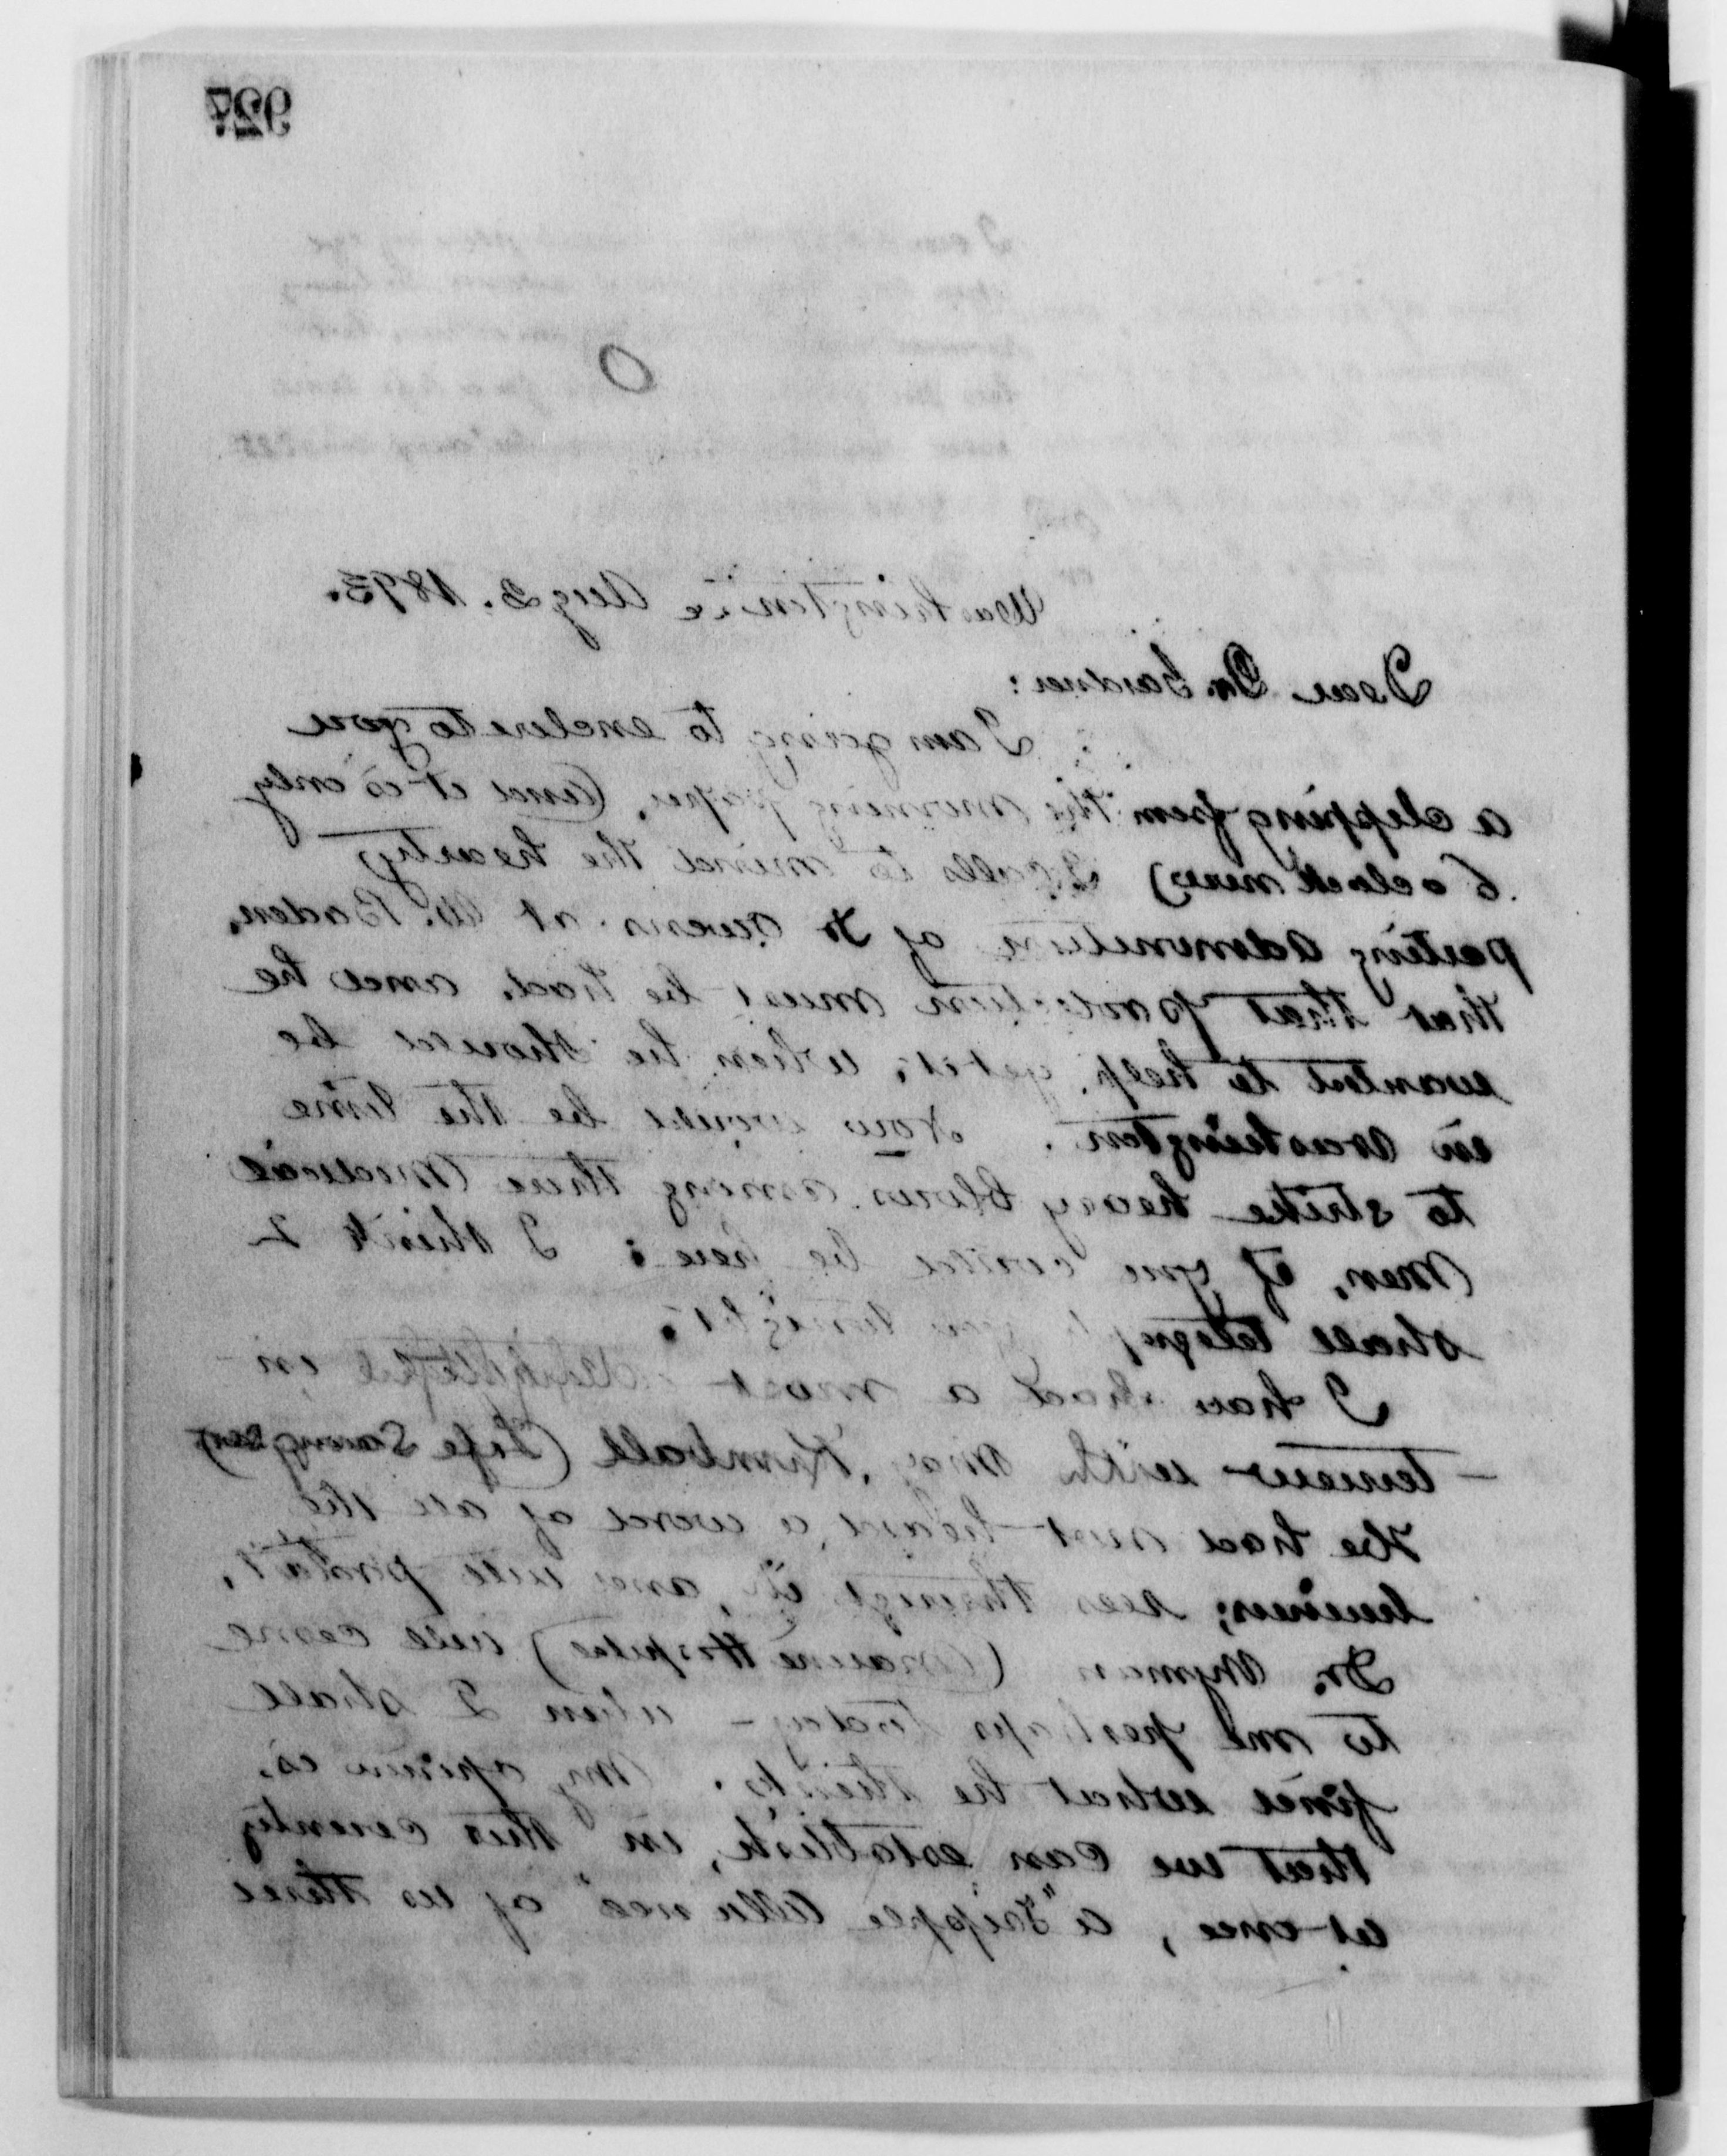 566
Washington DC Aug 3. 1893.
Dear Dr. Gardner:
I am going to enclose to you
a clipping from this morning paper, (and it is only
6 oclock now) It calls to mind the hearty
parting admonition of Dr Owens at W. Baden,
that that protection must be had, and he
wanted to help get it, when he should be
in Washington. Now would be the time
to strike heavy blows among these medical
men, if you could be here: I think I
shall telegraph you tonight.
I have had a most delightful in-
terview with Maj. Kimball (Life Saving Ser)
He had not heard a word of all the
business; sees through it, and will protect,
Dr. Wyman (Marine Hospital) will come
to me perhaps today - when I shall
find what he thinks. My opinion is,
that we can establish, in this country
at once, a "Tripple Alliance" of us three